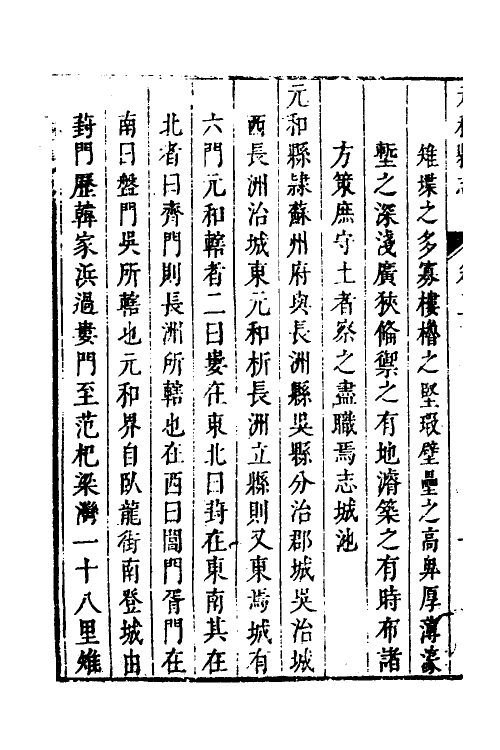 雉堞之多寡樓櫓之堅瑕壁壘之高卑厚薄濠
塹之深淺廣狹備禦之有地濬築之有時布諸
方策庶守土者察之盡職焉志城池
元和縣隷蘇州府與長洲縣吳縣分治郡城吳治城
西長洲治城東元和析長洲立縣則又東焉城有
六門元和轄者二曰婁在東北曰葑在東南其在
北者曰齊門則長洲所轄也在西曰閶門胥門在
南曰盤門吳所轄也元和界自臥龍街南登城由
葑門歷韓家浜過婁門至范杷梁灣一十八里雉